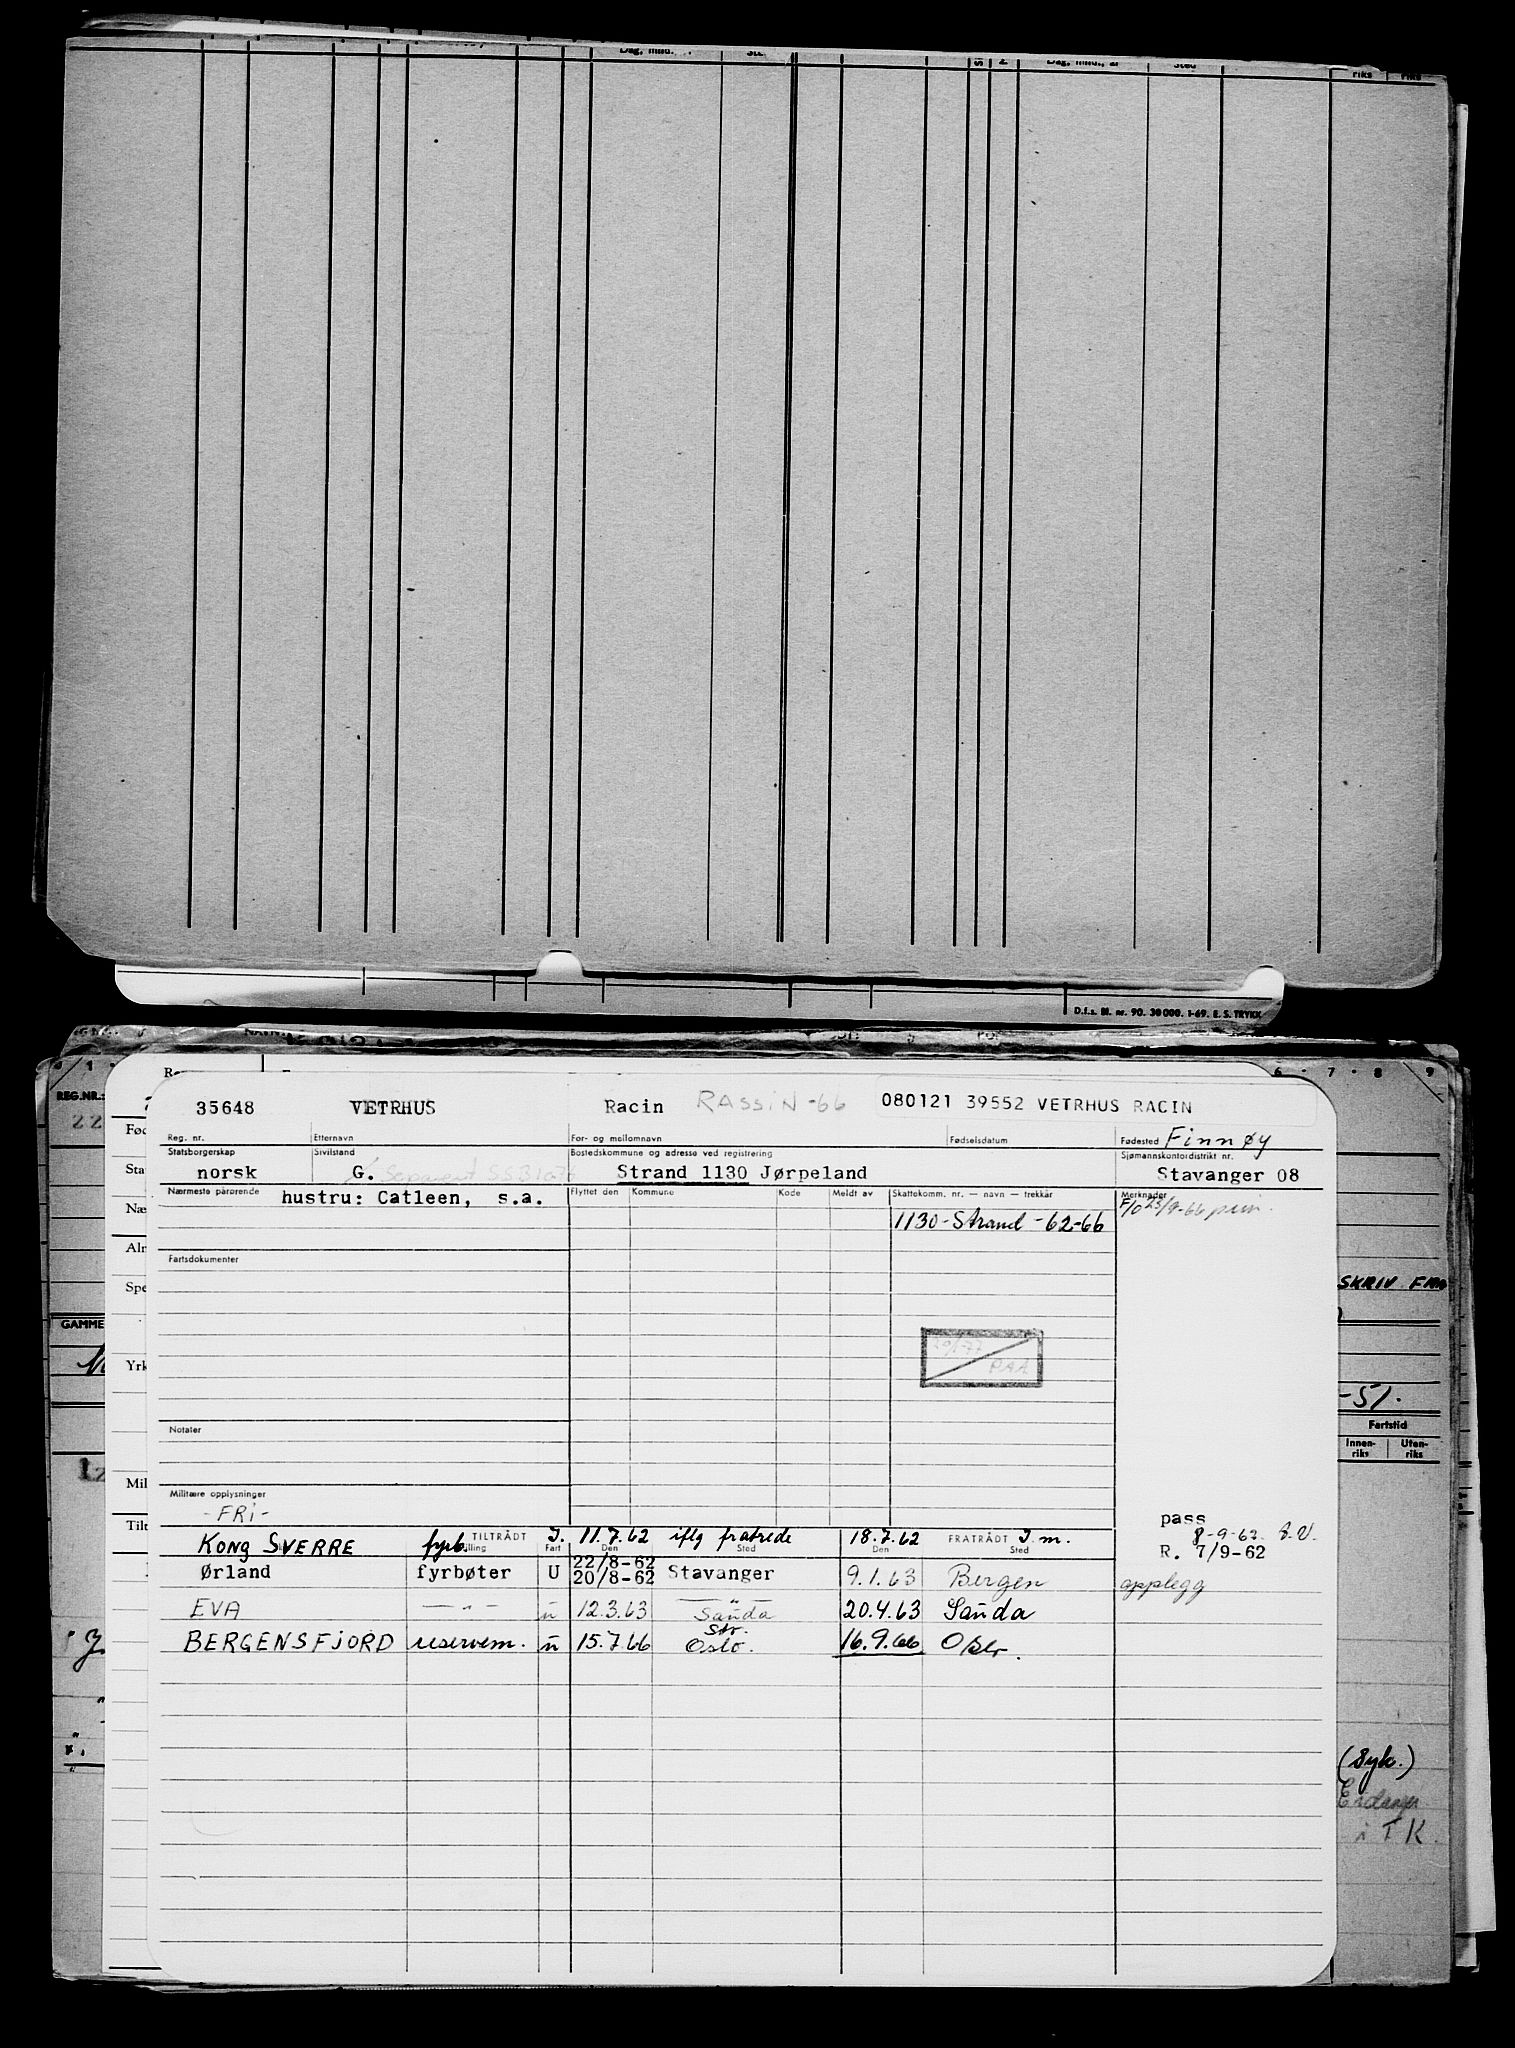 Dag, mnd. Ste.
S
Dag, mnd., år Sted
riks riks
D.f.s. Bl. nr. 90. 30 000. 1-69. E. S. TRYKK
1 6 7 8 9
REG.NR.:
22
35648 VETRHUS Racin RASSIN -66 080121 39552 VETRHUS RACIN
Reg. nr. Etternavn For- og mellomnavn Fødselsdatum Fødested Finnøy
Fød
Statsborgerskap Sivilstand Bostedskommune og adresse ved registrering Sjømannskontordistrikt nr.
Sta
norsk G. Separert Strand 1130 Jørpeland Stavanger 08
Nærmeste pårørende hustru: Catleen, s.a. Flyttet den Kommune Kode Meldt av Skattekomm. nr. — navn — trekkår Merknader
Næ
F/o 23/9-66
1130-Strand -62-66
Aln
Fartsdokumenter
Spe
SKRIV FRA
GAMME
Yrk
PAA
-51.
Fartstid
Notater
Innen-riks Uten-riks
Mil
Militære opplysninger
-FRI-
pass
Tilt
KONG SVERRE fyrb. TILTRÅDT Stilling J. Fart 11.7.62 Den iflg fratrede Sted 18.7.62 Den FRATRÅDT J. m. Sted
8-9-62
R. 7/9-62
Ørland fyrbøter U 22/8-62 20/8-62 Stavanger 9.1.63 Bergen opplegg
EVA —"— u 12.3.63 —"— Sauda 20.4.63 Sauda
BERGENSFJORD reservem. u 15.7.66 Oslo. 16.9.66 Oslo.
(Syk.)
i TK.